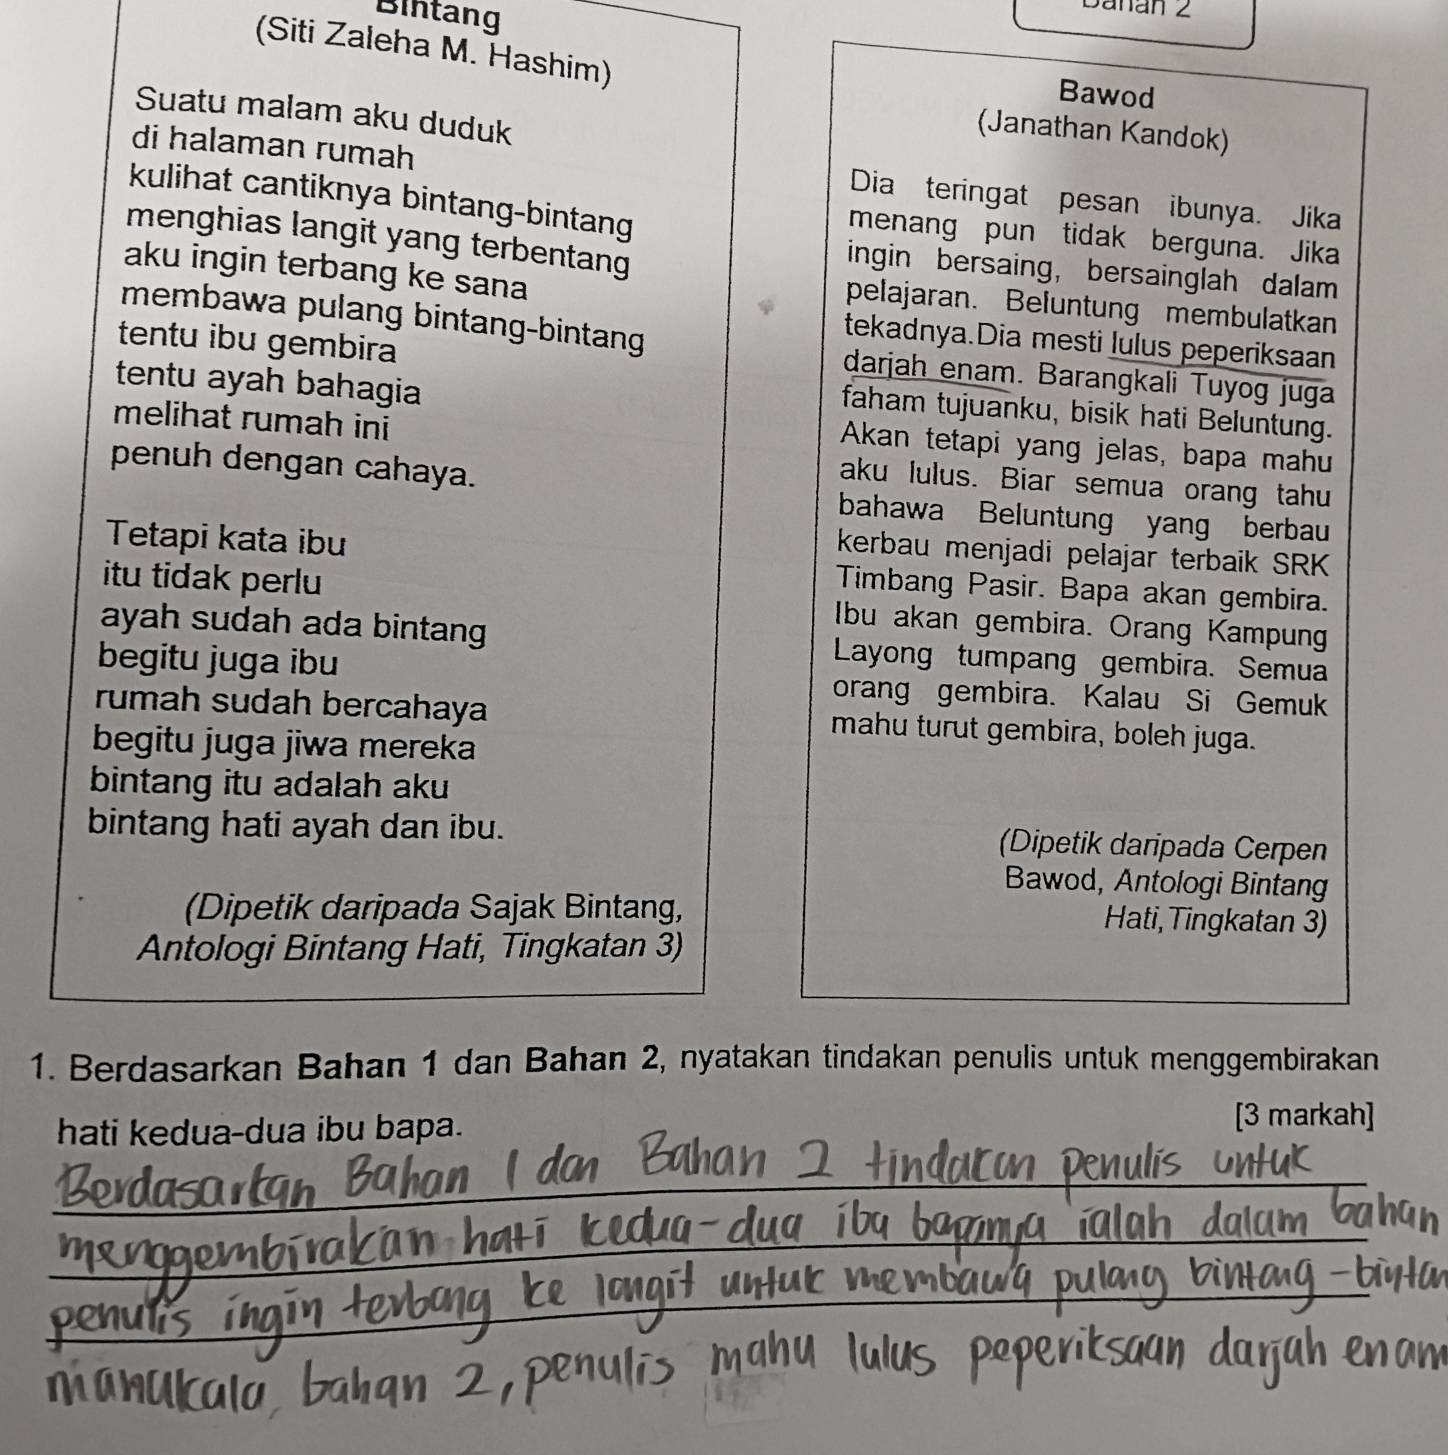 Bintang
(Siti Zaleha M. Hashim)
Suatu malam aku duduk
di halaman rumah
kulihat cantiknya bintang-bintang
menghias langit yang terbentang
aku ingin terbang ke sana
membawa pulang bintang-bintang
tentu ibu gembira
tentu ayah bahagia
melihat rumah ini
penuh dengan cahaya.
Tetapi kata ibu
itu tidak perlu
ayah sudah ada bintang
begitu juga ibu
rumah sudah bercahaya
begitu juga jiwa mereka
bintang itu adalah aku
bintang hati ayah dan ibu.
(Dipetik daripada Sajak Bintang,
Antologi Bintang Hati, Tingkatan 3)
Bahan 2
Bawod
(Janathan Kandok)
Dia teringat pesan ibunya. Jika
menang pun tidak berguna. Jika
ingin bersaing, bersainglah dalam
pelajaran. Beluntung membulatkan
tekadnya.Dia mesti lulus peperiksaan
darjah enam. Barangkali Tuyog juga
faham tujuanku, bisik hati Beluntung.
Akan tetapi yang jelas, bapa mahu
aku lulus. Biar semua orang tahu
bahawa Beluntung yang berbau
kerbau menjadi pelajar terbaik SRK
Timbang Pasir. Bapa akan gembira.
Ibu akan gembira. Orang Kampung
Layong tumpang gembira. Semua
orang gembira. Kalau Si Gemuk
mahu turut gembira, boleh juga.
(Dipetik daripada Cerpen
Bawod, Antologi Bintang
Hati,Tingkatan 3)
1. Berdasarkan Bahan 1 dan Bahan 2, nyatakan tindakan penulis untuk menggembirakan
hati kedua-dua ibu bapa.
[3 markah]
Berdasarkan Bahan 1 dan Bahan 2 tindakan penulis untuk
menggembirakan hati kedua-dua iba bapanya ialah dalam bahan
penulis ingin terbang ke langit untuk membawa pulang bintang-bintan
manakala, bahan 2, penulis mahu lulus peperiksaan darjah enam